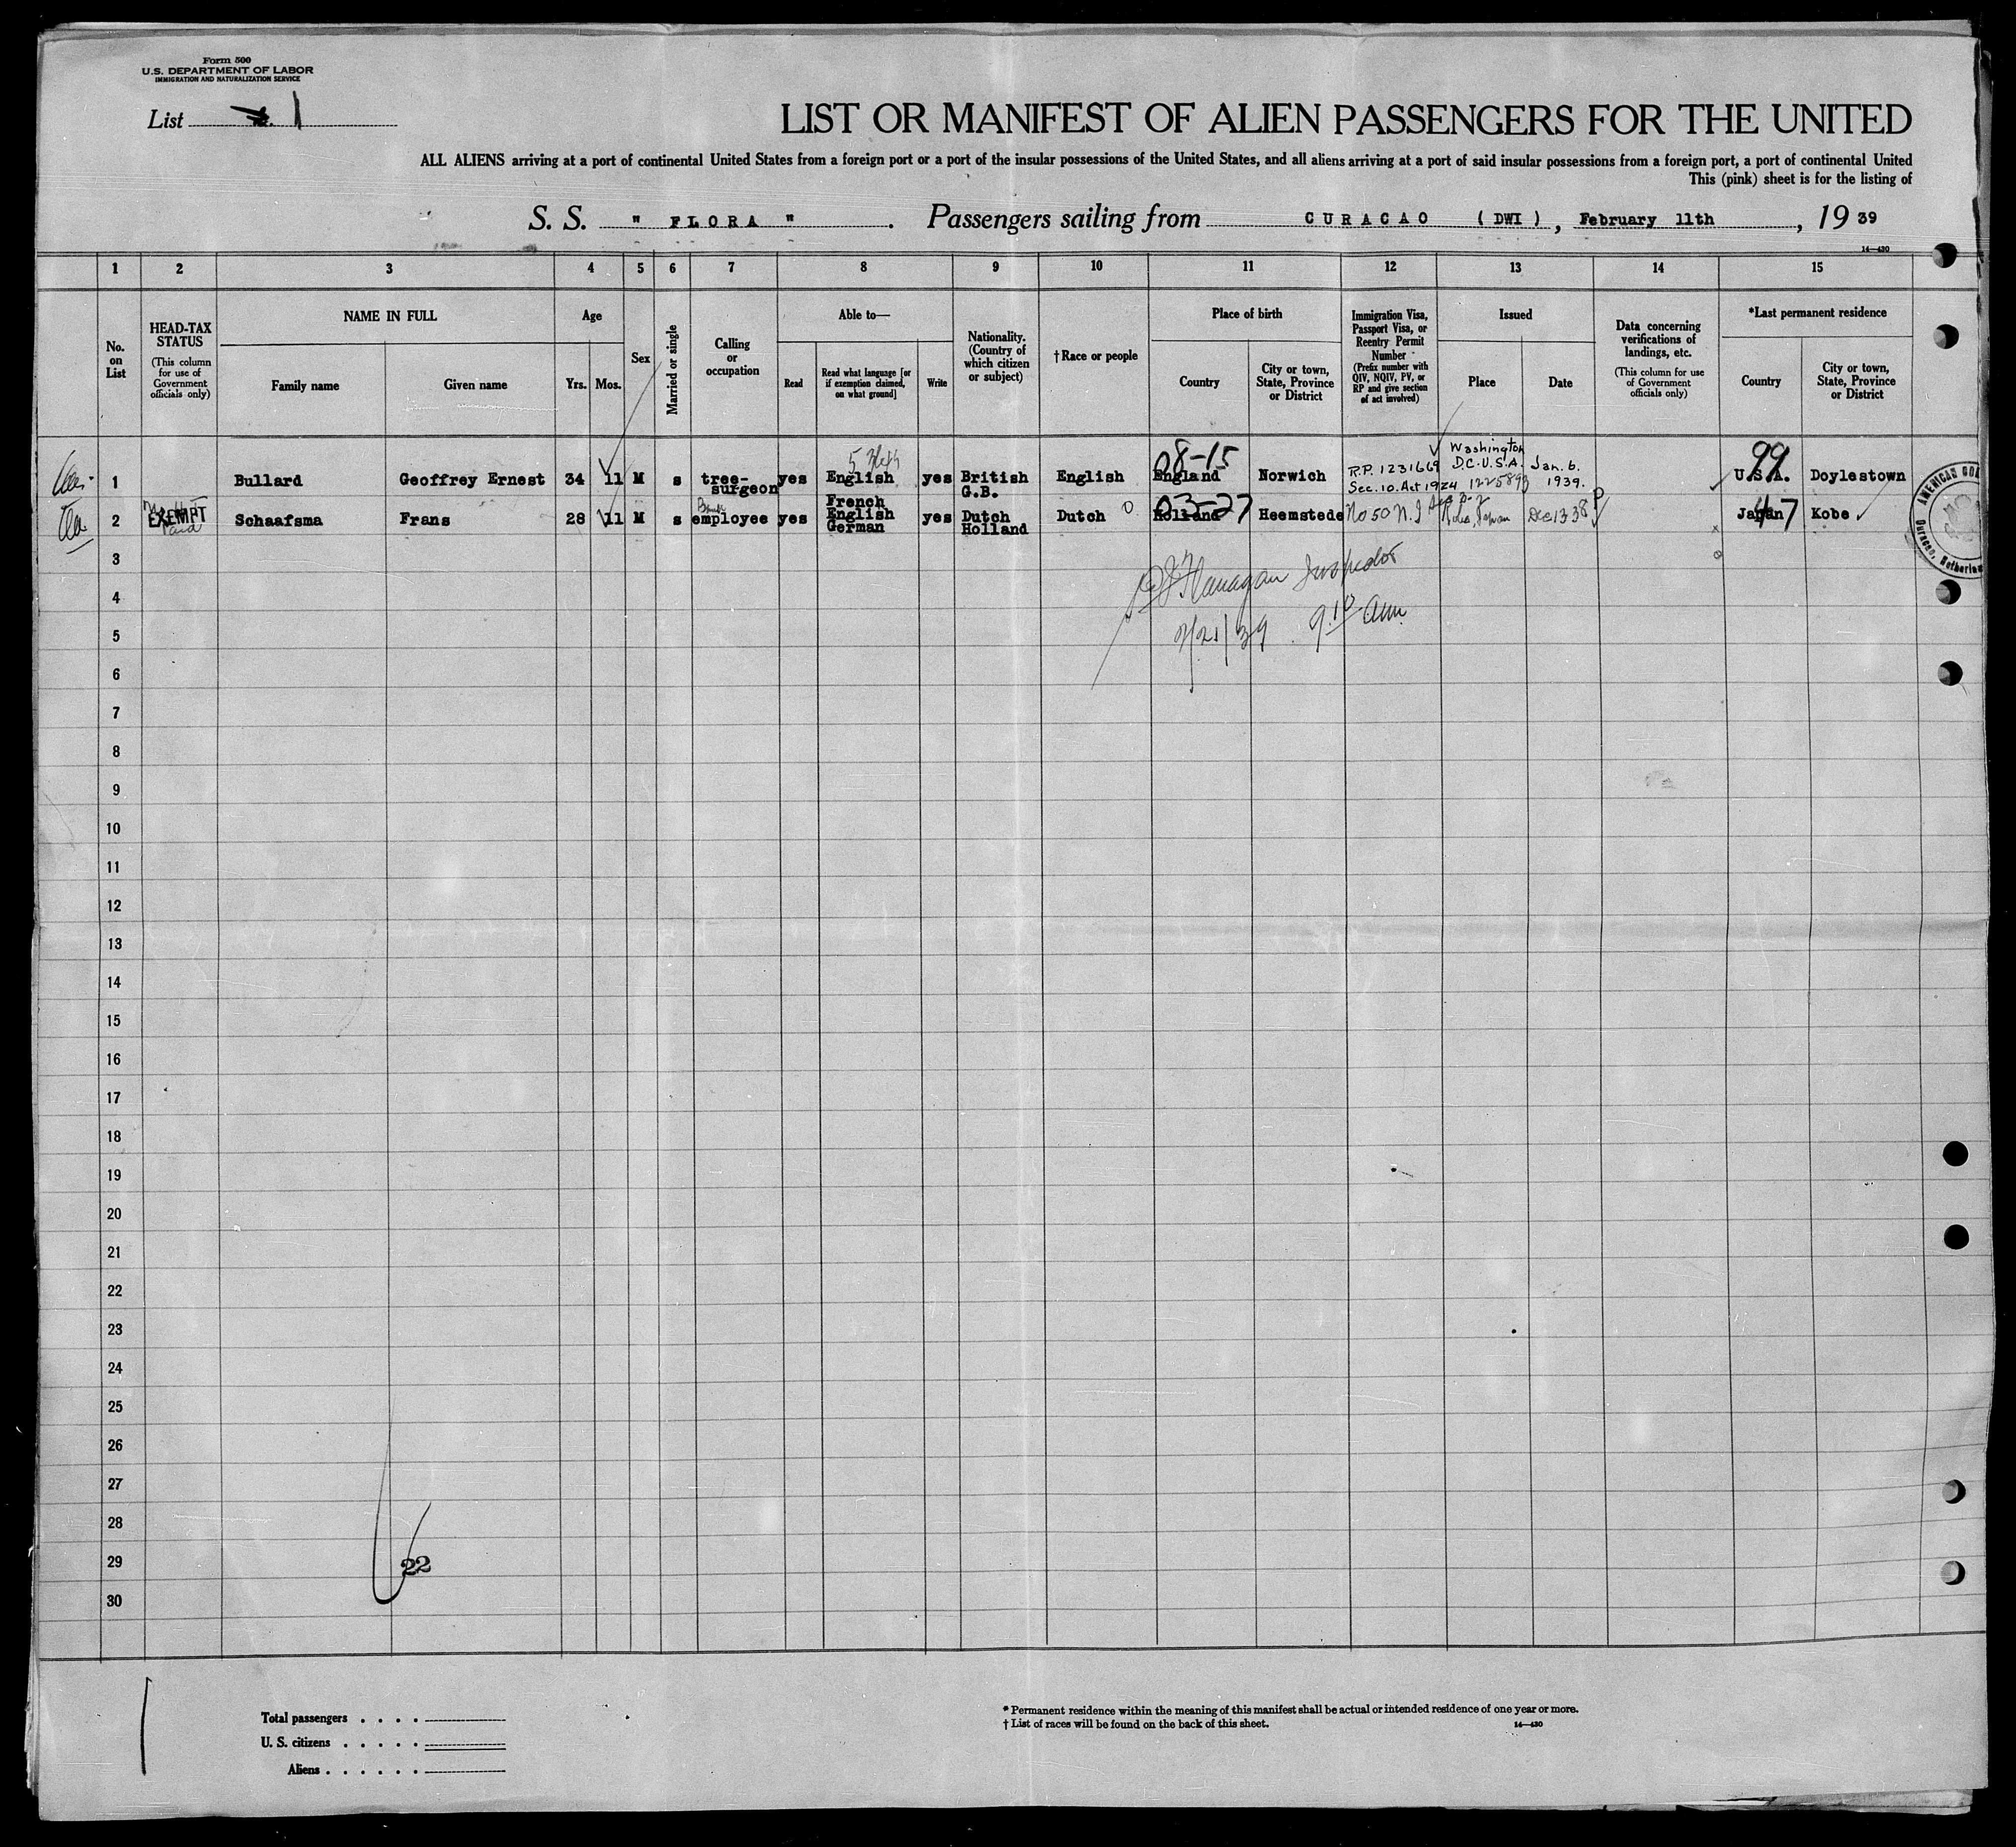 Form 500
U.S. DEPARTMENT OF LABOR
IMMIGRATION AND NATURALIZATION SERVICE
List 1
LIST OR MANIFEST OF ALIEN PASSENGERS FOR THE UNITED
ALL ALIENS arriving at a port of continental United States from a foreign port or a port of the insular possessions of the United States, and all aliens arriving at a port of said insular possessions from a foreign port, a port of continental United
This (pink) sheet is for the listing of
S. S. " FLORA ". Passengers sailing from CURACAO (DWI), February 11th, 19 39
14—430
1 2 3 4 5 6 7 8 9 10 11 12 13 14 15
No. on List
HEAD-TAX STATUS
(This column for use of Government officials only)
NAME IN FULL
Family name
Given name
Age
Yrs.
Mos.
Sex
Married or single
Calling or occupation
Able to—
Read
Read what language [or if exemption claimed, on what ground]
Write
Nationality. (Country of which citizen or subject)
†Race or people
Place of birth
Country
City or town, State, Province or District
Immigration Visa, Passport Visa, or Reentry Permit Number
(Prefix number with QIV, NQIV, PV, or RP and give section of act involved)
Issued
Place
Date
Data concerning verifications of landings, etc.
(This column for use of Government officials only)
*Last permanent residence
Country
City or town, State, Province or District
1 Bullard Geoffrey Ernest 34 11 M s tree-surgeon yes English yes British G.B. English England 08-15 Norwich R.P. 1231669 Sec. 10. Act 1924 Washington D.C. U.S.A. 1225893 Jan. 6. 1939. U.S.A. 99 Doylestown
2 EXEMPT Schaafsma Frans 28 11 M s Bank employee yes French English German yes Dutch Holland Dutch Holland 03-27 Heemstede No 50 Kobe, Japan Dec 13 38 Japan 47 Kobe
AMERICAN CON
Curacao, Netherlan
3
Flanagan Inspector
4
2/21/39 9.10 am
5
6
7
8
9
10
11
12
13
14
15
16
17
18
19
20
21
22
23
24
25
26
27
28
29
22
30
Total passengers . . . .
U. S. citizens . . . . .
Aliens . . . . . .
* Permanent residence within the meaning of this manifest shall be actual or intended residence of one year or more.
† List of races will be found on the back of this sheet.
14—430